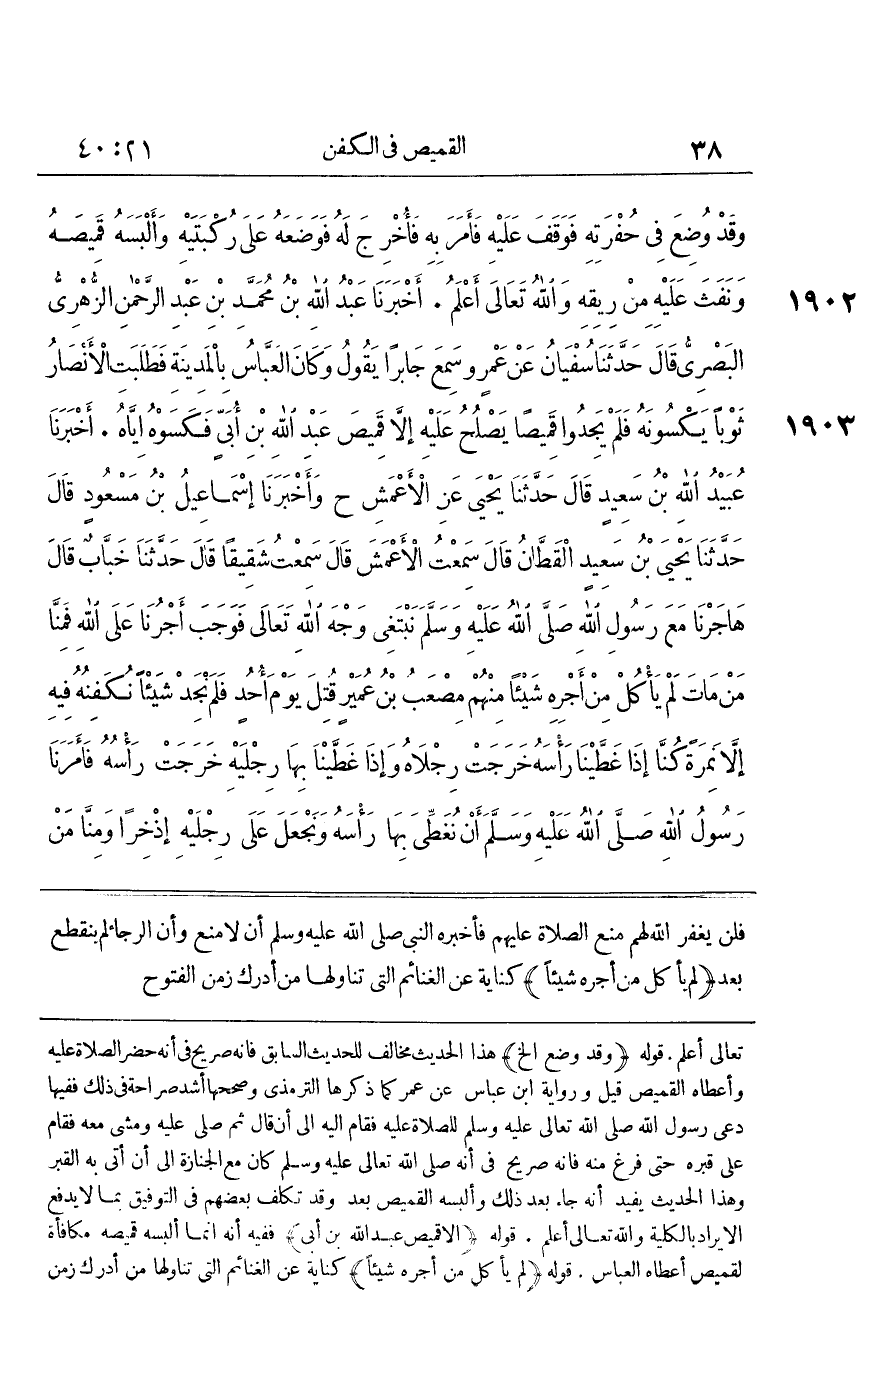 ٣٨ القميص فى الكفن ٢١ : ٤٠
وَقَدْ وُضِعَ فِى حُفْرَتِهِ فَوَقَفَ عَلَيْهِ فَأَمَرَ بِهِ فَأُخْرِجَ لَهُ فَوَضَعَهُ عَلَى رُكْبَتَيْهِ وَأَلْبَسَهُ قَمِيصَهُ
١٩٠٢ وَنَفَثَ عَلَيْهِ مِنْ رِيقِهِ وَاللهُ تَعَالَى أَعْلَمُ . أَخْبَرَنَا عَبْدُ اللهِ بْنُ مُحَمَّدِ بْنِ عَبْدِ الرَّحْمٰنِ الزُّهْرِىُّ
الْبَصْرِىُّ قَالَ حَدَّثَنَا سُفْيَانُ عَنْ عَمْرٍو سَمِعَ جَابِرًا يَقُولُ وَكَانَ الْعَبَّاسُ بِالْمَدِينَةِ فَطَلَبَتِ الْأَنْصَارُ
١٩٠٣ ثَوْبًا يَكْسُونَهُ فَلَمْ يَجِدُوا قَمِيصًا يَصْلُحُ عَلَيْهِ إِلَّا قَمِيصَ عَبْدِ اللهِ بْنِ أُبَىٍّ فَكَسَوْهُ إِيَّاهُ . أَخْبَرَنَا
عُبَيْدُ اللهِ بْنُ سَعِيدٍ قَالَ حَدَّثَنَا يَحْيَى عَنِ الْأَعْمَشِ ح وَأَخْبَرَنَا إِسْمَاعِيلُ بْنُ مَسْعُودٍ قَالَ
حَدَّثَنَا يَحْيَى بْنُ سَعِيدٍ الْقَطَّانُ قَالَ سَمِعْتُ الْأَعْمَشَ قَالَ سَمِعْتُ شَقِيقًا قَالَ حَدَّثَنَا خَبَّابٌ قَالَ
هَاجَرْنَا مَعَ رَسُولِ اللهِ صَلَّى اللهُ عَلَيْهِ وَسَلَّمَ نَبْتَغِى وَجْهَ اللهِ تَعَالَى فَوَجَبَ أَجْرُنَا عَلَى اللهِ فَمِنَّا
مَنْ مَاتَ لَمْ يَأْكُلْ مِنْ أَجْرِهِ شَيْئًا مِنْهُمْ مُصْعَبُ بْنُ عُمَيْرٍ قُتِلَ يَوْمَ أُحُدٍ فَلَمْ نَجِدْ شَيْئًا نُكَفِّنُهُ فِيهِ
إِلَّا نَمِرَةً كُنَّا إِذَا غَطَّيْنَا رَأْسَهُ خَرَجَتْ رِجْلَاهُ وَإِذَا غَطَّيْنَا بِهَا رِجْلَيْهِ خَرَجَتْ رَأْسُهُ فَأَمَرَنَا
رَسُولُ اللهِ صَلَّى اللهُ عَلَيْهِ وَسَلَّمَ أَنْ نُغَطِّىَ بِهَا رَأْسَهُ وَنَجْعَلَ عَلَى رِجْلَيْهِ إِذْخِرًا وَمِنَّا مَنْ
فلن يغفر الله لهم منع الصلاة عليهم فأخبره النبى صلى الله عليه وسلم أن لا منع وأن الرجا لم ينقطع
بعد ﴿لم يأكل من أجره شيئا﴾ كناية عن الغنائم التى تناولها من أدرك زمن الفتوح
تعالى أعلم . قوله ﴿وقد وضع الخ﴾ هذا الحديث مخالف للحديث السابق فانه صريح فى أنه حضر الصلاة عليه
وأعطاه القميص قيل و رواية ابن عباس عن عمر كما ذكرها الترمذى وصححها أشد صراحة فى ذلك ففيها
دعى رسول الله صلى الله تعالى عليه وسلم للصلاة عليه فقام اليه الى أن قال ثم صلى عليه ومشى معه فقام
على قبره حتى فرغ منه فانه صريح فى أنه صلى الله تعالى عليه وسلم كان مع الجنازة الى أن أتى به القبر
وهذا الحديث يفيد أنه جاء بعد ذلك وألبسه القميص بعد وقد تكلف بعضهم فى التوفيق بما لا يدفع
الايراد بالكلية والله تعالى أعلم . قوله ﴿الا قميص عبد الله بن أبى﴾ ففيه أنه انما ألبسه قميصه مكافأة
لقميص أعطاه العباس . قوله ﴿لم يأكل من أجره شيئاً﴾ كناية عن الغنائم التى تناولها من أدرك زمن